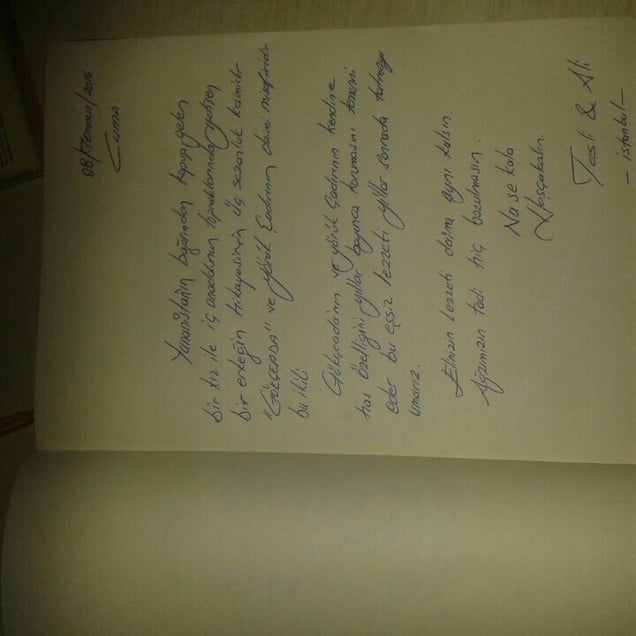 08/Temmuz/2016
Cuma
Yunanistanın bağrından kopup gelen
bir kız ile iç anadolunun topraklarından yetişen
bir erkeğin hikayesinin üç sezonluk kesimidir
"GÖKÇEADA" ve yörük Çadırının daimi misafiridir
bu ikili
Gökçeada'nın ve yörük Çadırının kendine
has özelliğini yıllar boyunca korumasını temenni
eder bu eşsiz lezzeti yıllar sonrada tatmayı
umarız.
Elinizin Lezzeti daima aynı kalsın.
Ağzımızın tadı hiç bozulmasın.
Na se kala
Hoşçakalın.
& Ali
- istanbul -